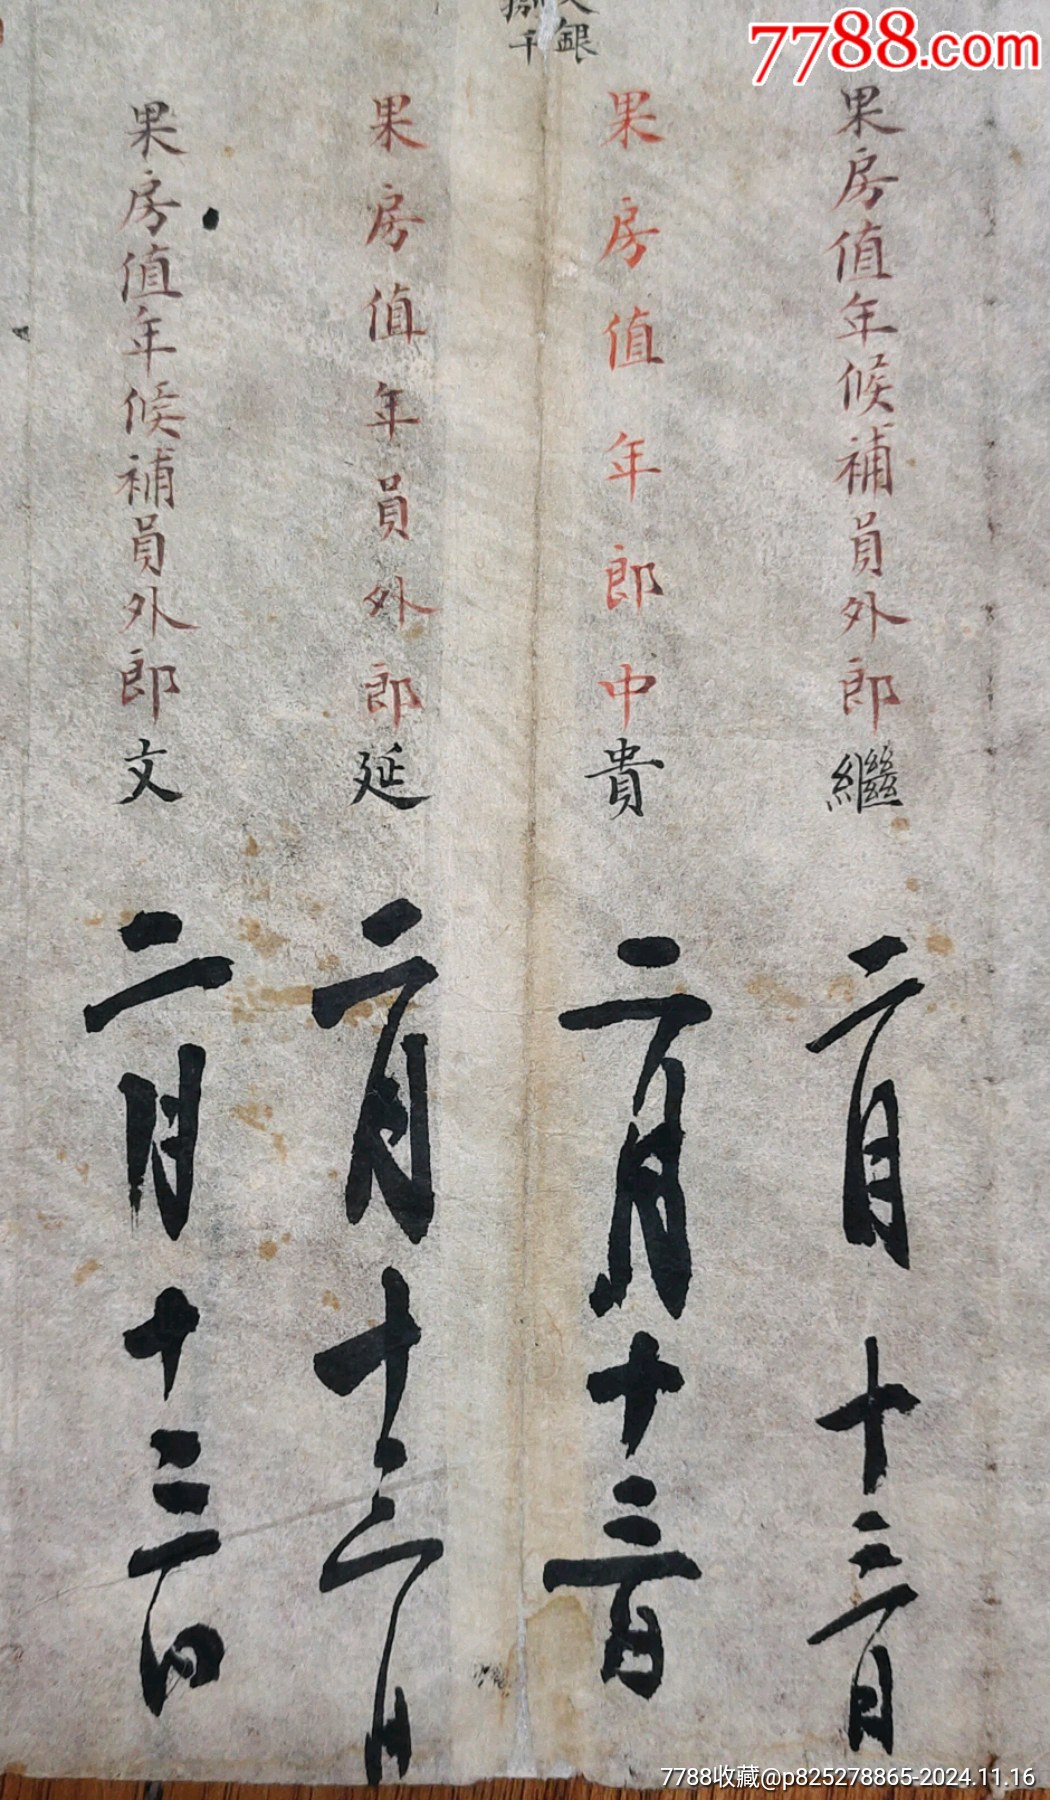 7788.com
銀
捌千
果房值年候補員外郎繼
二月十三日
果房值年郎中貴
二月十三日
果房值年員外郎延
二月十三日
果房值年候補員外郎文
二月十三日
7788收藏@p825278865-2024.11.16